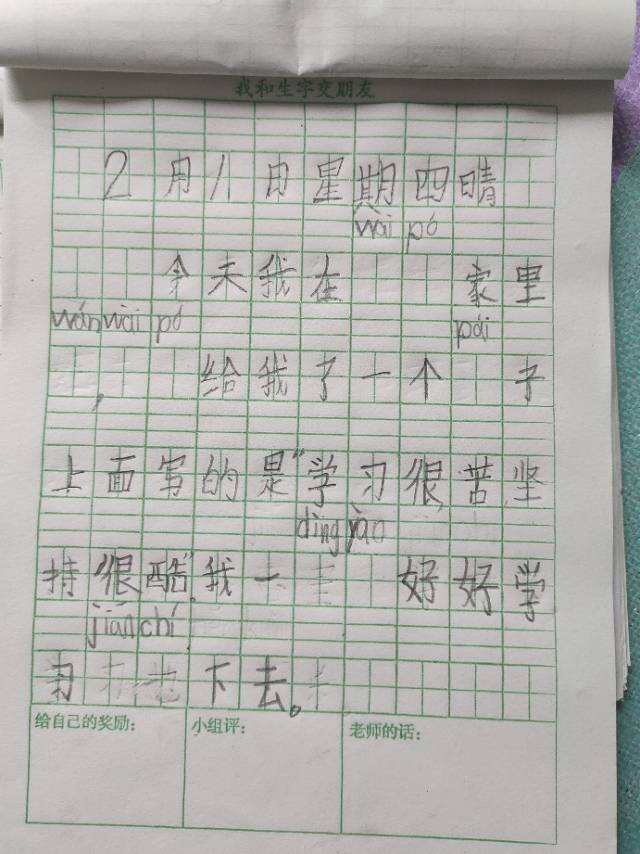 我和生字交朋友
2月八日星期四晴
wài pó
今天我在家里
wán wài pó pái
,给我了一个子
上面写的是"学习很苦坚
dìng yào
持很酷"我一好好学
jiān chí
习下去。
给自己的奖励: 小组评: 老师的话: